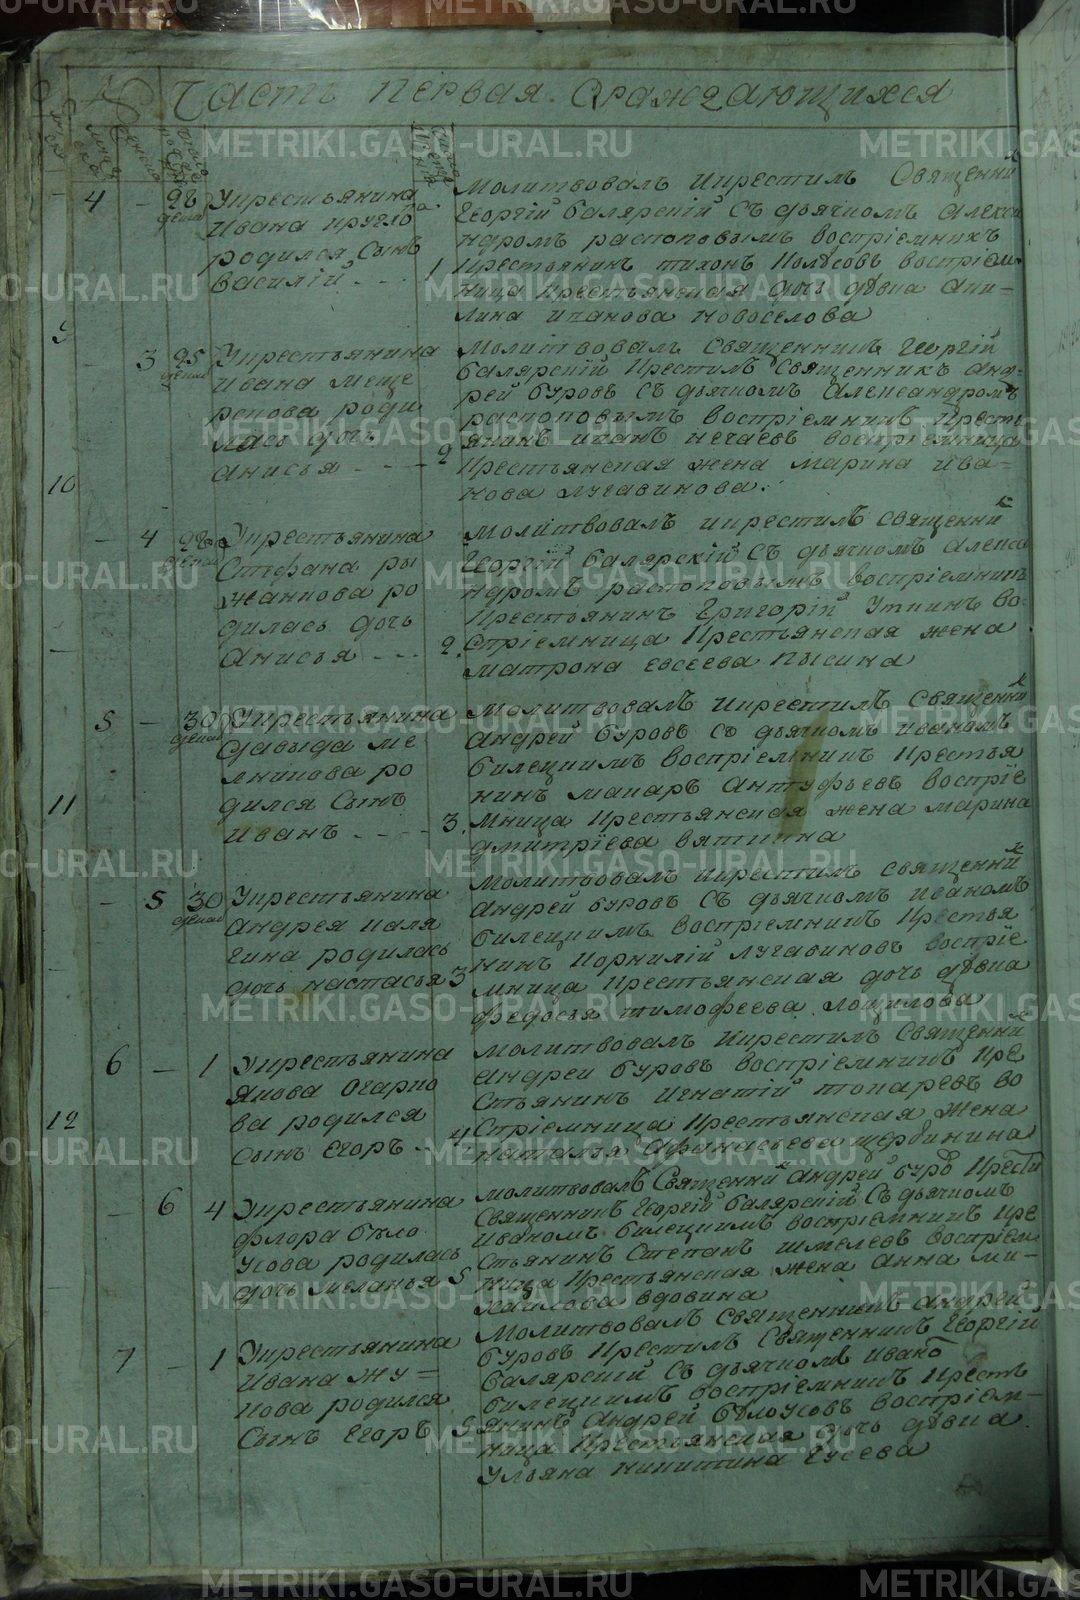 Часть первая. Ораждающихся
4 — 28 декаб
Укрестьянина
Ивана кругло
ва
родился сынъ
василій - - - 1
Молитвовалъ икрестилъ Священник
Георгій балярскій съ дьячкомъ Алекса
ндромъ распоповымъ воспріемникъ
крестьянинъ тихонъ Колѣсовъ воспріем
ница крестьянская дочь дѣвка Аки-
лина иванова новоселова
9
3 25 декаб
Укрестьянина
ивана меще
рскова роди
лась дочь
анисья - - - - 2
молитвовалъ священникъ георгій
балярскій крестилъ священникъ анд-
рей буровъ съ дьячкомъ александромъ
распоповымъ воспріемникъ кресть
янинъ иванъ нечаевъ воспріемница
крестьянская жена марина ива-
нова лугавинова.
10
— 4 28 декаб
Укрестьянина
Стефана ры
жанкова ро
дилась дочь
Анисья - - - 2.
молитвовалъ икрестилъ священник
Георгій балярскій съ дьячкомъ алекса
ндромъ распоповымъ воспріемникъ
крестьянинъ григорій Уткинъ во-
спріемница крестьянская жена
матрона евсеева кысина
5 — 30 декаб
Укрестьянина
давыда ме
лникова ро
дился сынъ
иванъ - - - - 3.
молитвовалъ икрестилъ священник
андрей буровъ съ дьячкомъ иваномъ
билецкимъ воспріемникъ крестья
нинъ макаръ Антуфьевъ воспріе
мница крестьянская жена марина
дмитріева вяткина
11
— 5 30 декаб
Укрестьянина
андрея каля
гина родилась
дочь настасья 3
молитвовалъ икрестилъ священник
андрей буровъ съ дьячкомъ иваномъ
билецкимъ воспріемникъ крестья
нинъ корнилій лугавиновъ воспріе
мница крестьянская дочь дѣвка
федосья тимофеева лощилова
6 — 1
Укрестьянина
якова огарко
ва родился
сынъ егоръ - - 4
молитвовалъ икрестилъ священник
андрей буровъ воспріемникъ кре
стьянинъ игнатій токаревъ во
спріемница крестьянская жена
наталья афанасьева щербинина
12
— 6 4
Укрестьянина
флора бѣло
усова родилась
дочь меланья 5
молитвовалъ священник андрей буро крести
священникъ георгій балярскій съ дьячкомъ
иваномъ билецкимъ воспріемникъ кре
стьянинъ степанъ шмелевъ воспріем
ница крестьянская жена анна ми-
хайлова вдовина
7 — 1
Укрестьянина
ивана жу=
кова родился
сынъ егоръ 5
молитвовалъ священникъ андрей
буровъ крестилъ священникъ георгій
балярскій съ дьячкомъ ивано
билецкимъ воспріемникъ кресть
янинъ андрей бѣлоусовъ воспріем-
ница крестьянская дочь дѣвка
Ульяна никитина гусева
METRIKI.GASO-URAL.RU